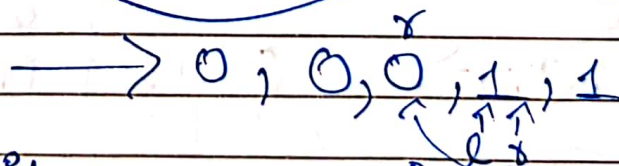 r
→ 0, 0, 0, 1, 1
l r